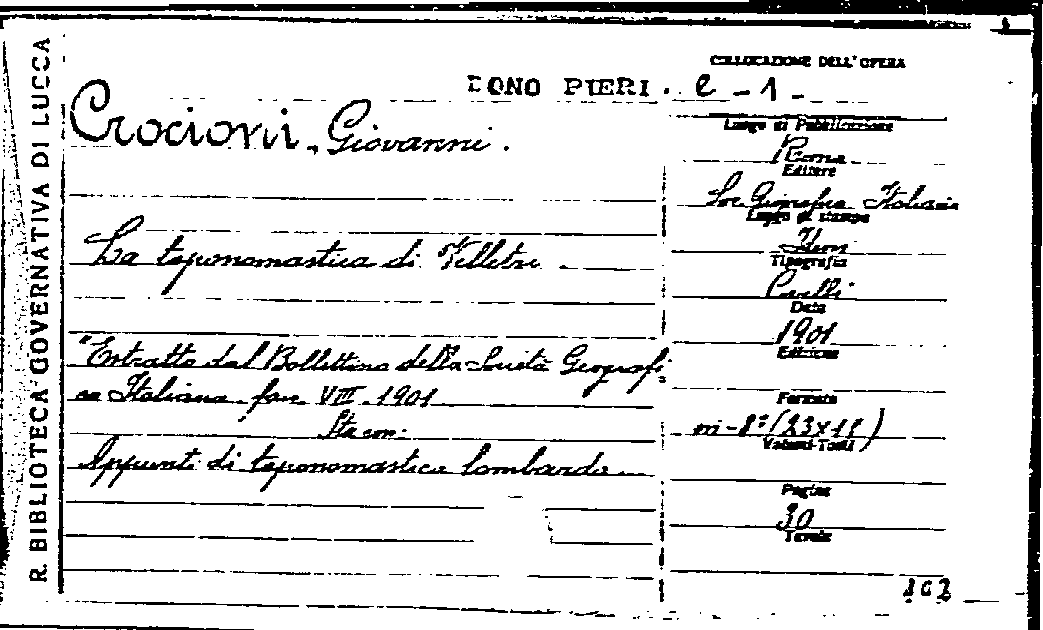 R. BIBLIOTECA GOVERNATIVA DI LUCCA
COLLOCAZIONE DELL'OPERA
DONO PIERI. e - 1 -
Crocioni, Giovanni.
La toponomastica di Velletri
"Estratto dal Bollettino della Società Geografi-
ca Italiana fasc. VIII. 1901
Sta con:
Appunti di toponomastica lombarda
Luogo di Pubblicazione
Roma
Editore
Soc Geografica Italiana
Luogo di stampa
Idem
Tipografia
Data
1901
Edizione
Formato
in-8° (23x15)
Volumi-Tomi
Pagine
30
Tavole